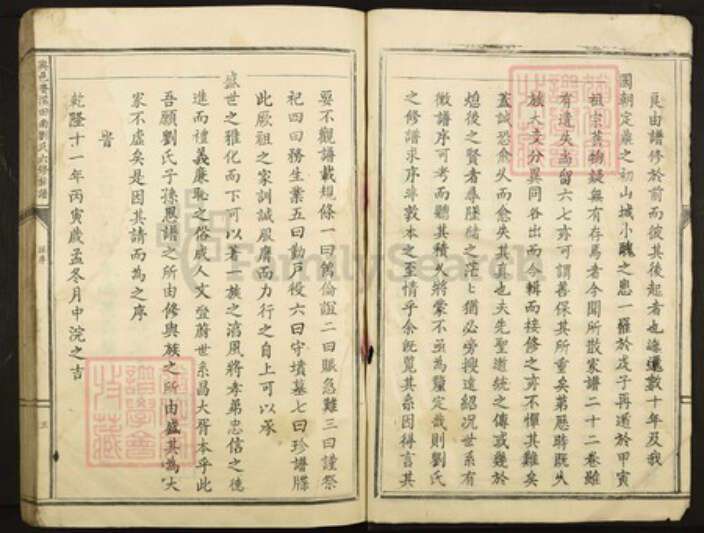 良由譜修於前而彼其後起者也緣邇數十年及我
國朝定鼎之初山城小醜之患一罹於戊子再遘於甲寅
祖宗舊物疑無有存焉者今閱所散家譜二十二卷雖
有遺失尚留六七亦可謂善保其所重矣第歷時既久
族大支分異同各出而今輯而接修之亦不憚其難矣
蓋誠恐愈久而愈失其真也夫先聖道統之傳或幾於
熄後之賢者尋墜緒之茫々猶必旁搜遠紹况世系有
徵譜序可考而聽其積久將蒙不亟為釐定哉則劉氏
之修譜求序非敦本之至情乎余既覧其系因得言其
要不觀譜載規條一曰篤倫誼二曰賑急難三曰謹祭
祀四曰務生業五曰勤戶役六曰守墳墓七曰珍譜牒
此厥祖之家訓誠服膺而力行之自上可以承
盛世之雅化而下可以著一族之淳風將孝弟忠信之德
進而禮義廉恥之俗成人文登蔚世系昌大胥本乎此
吾願劉氏子孫思譜之所由修與族之所由盛其為大
家不虛矣是因其請而為之序
皆
乾隆十一年丙寅歲孟冬月中浣之吉
劉氏六修族譜
FamilySearch